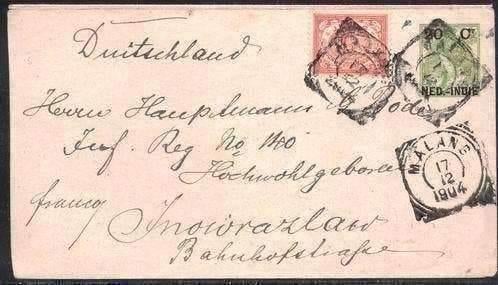 Duitschland
20 Ct
NED.-INDIË
Herrn Hauptmann
Inf. Reg No 140
Hochwohlgeboren
franco
Inowrazlaw
Bahnhofstrasse
MALANG
17
12
1904